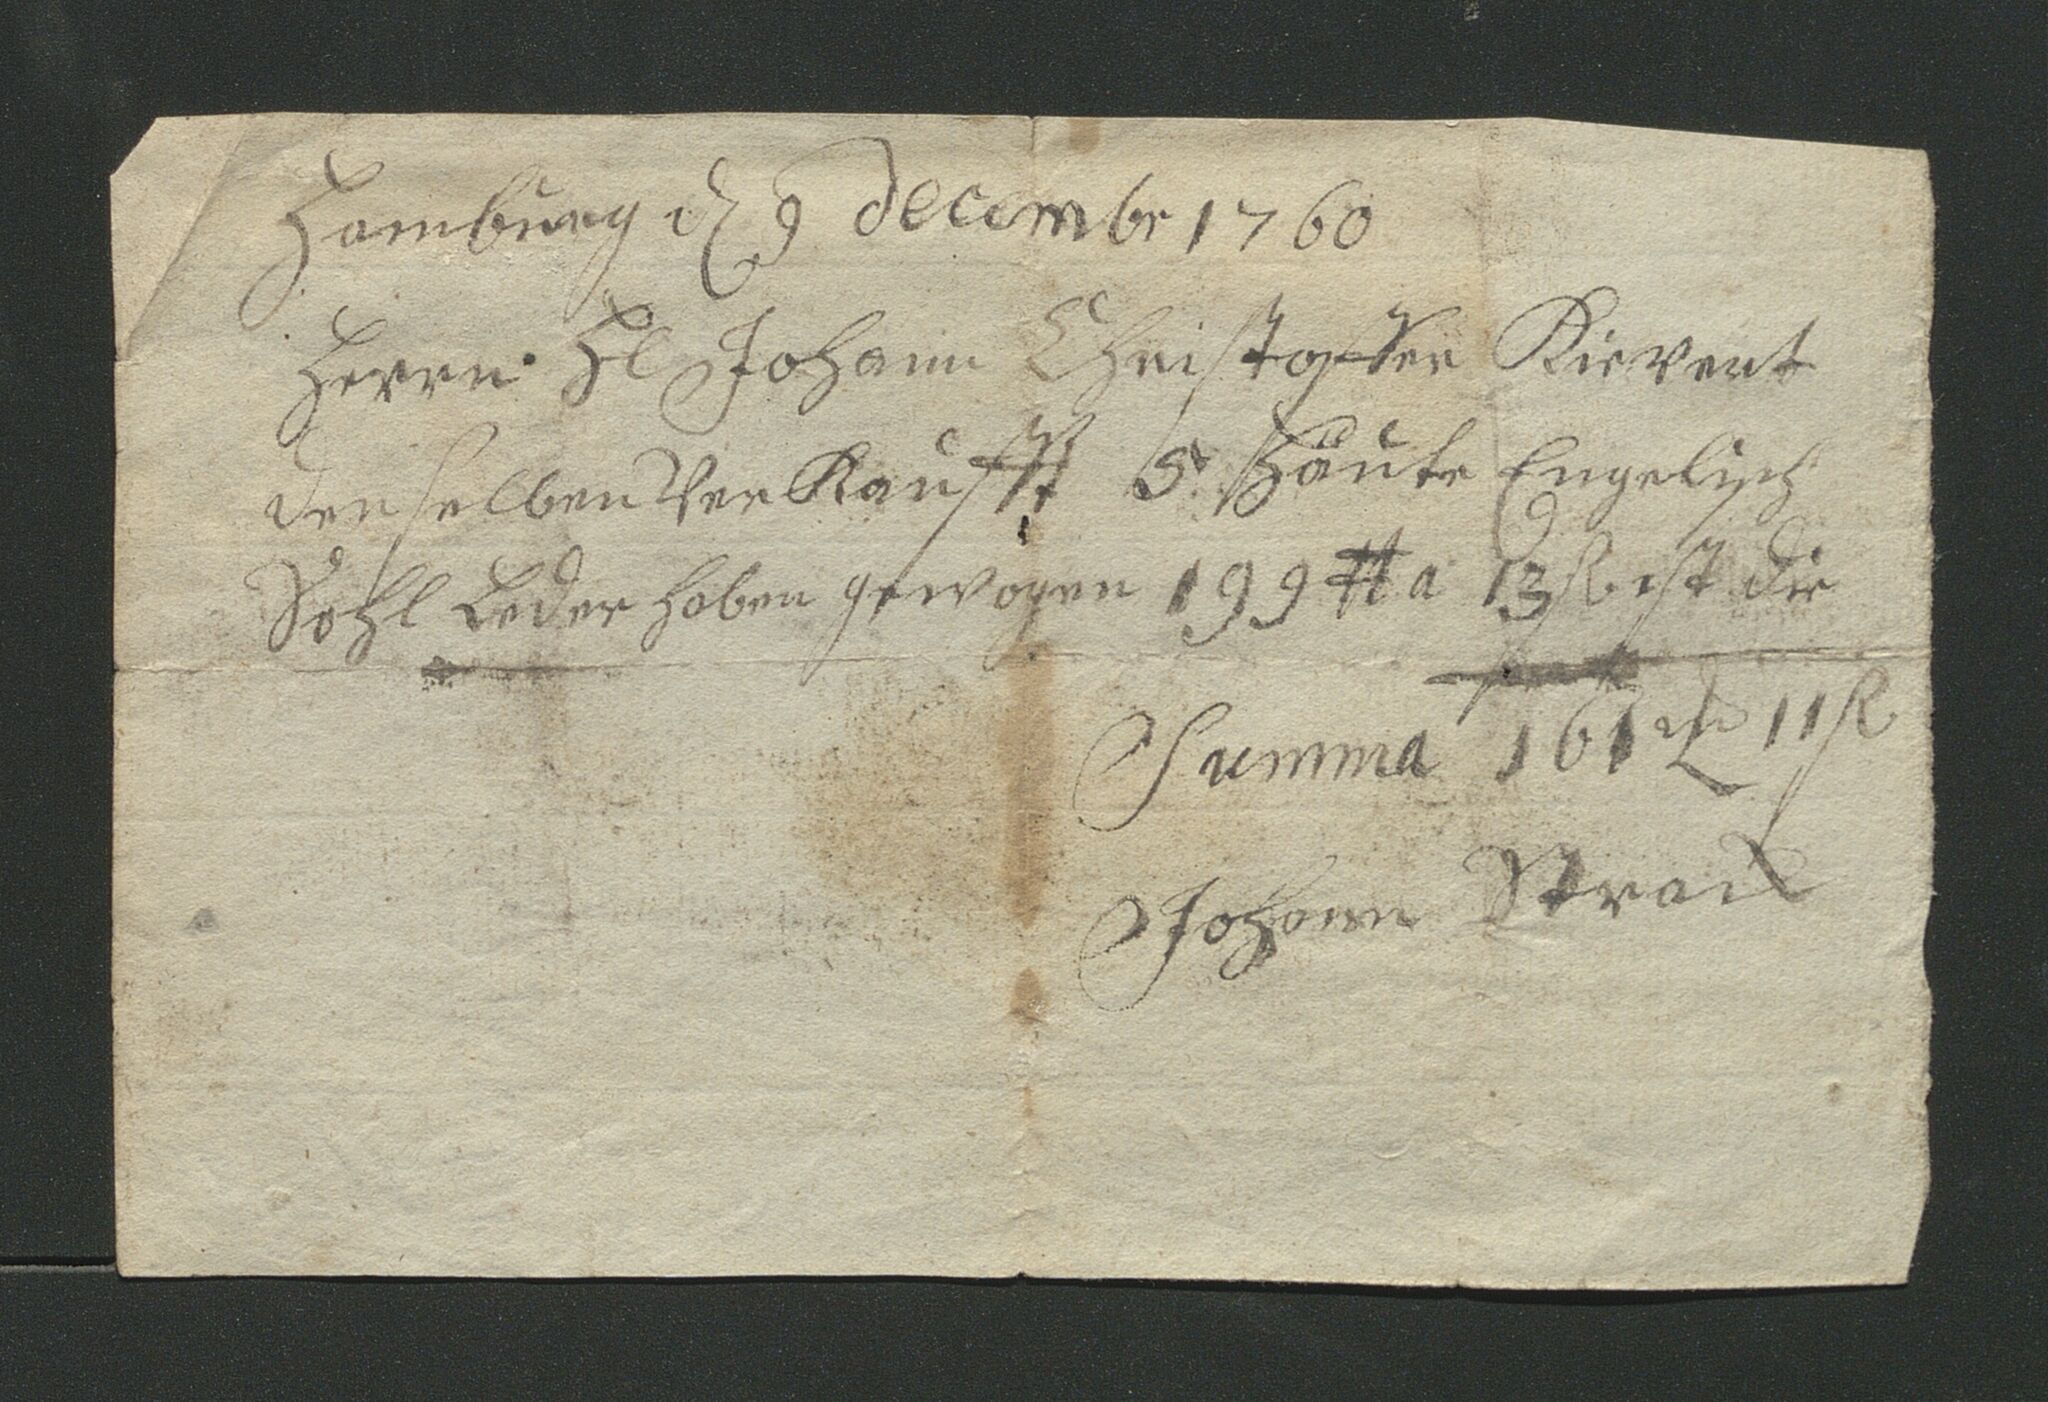 Hamburg d 9 decembr 1760
Herrn Hl Johann Christopffer Kievent
denselben Verkaufft 5 Häute Engelisch
Sohl Leder haben gewogen 199 ℔ a 13 ß ist die
Summa 161 m 11 ß
Johann Strack